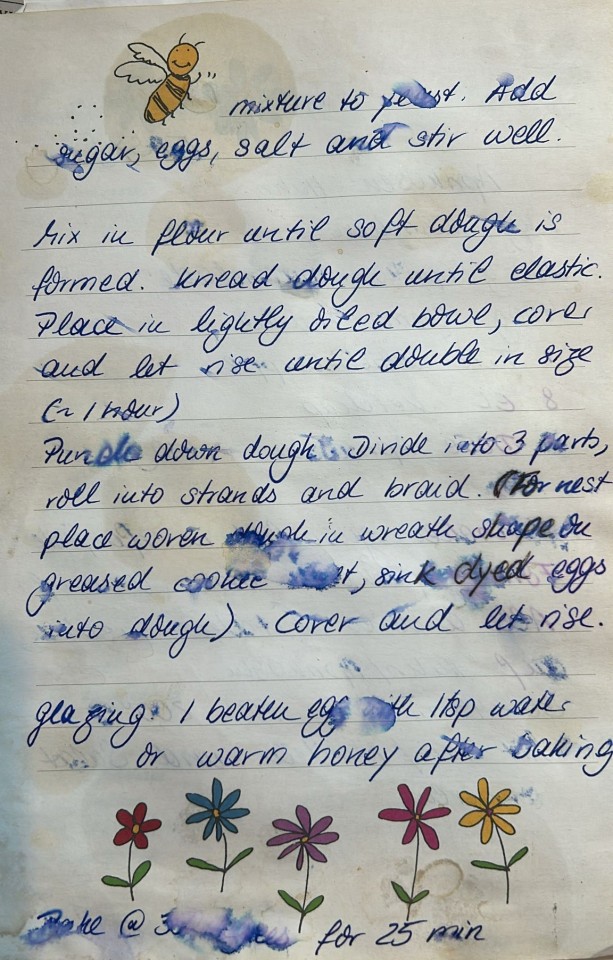 mixture to yeast. Add
sugar, eggs, salt and stir well.
Mix in flour until soft dough is
formed. Knead dough until elastic.
Place in lightly oiled bowl, cover
and let rise until double in size
(~ 1 hour)
Punch down dough. Divide into 3 parts,
roll into strands and braid. (For nest
place woven dough in wreath shape on
greased cookie sink dyed eggs
into dough) Cover and let rise.
glazing: 1 beaten egg with 1 tsp water
or warm honey after baking
Bake @ for 25 min